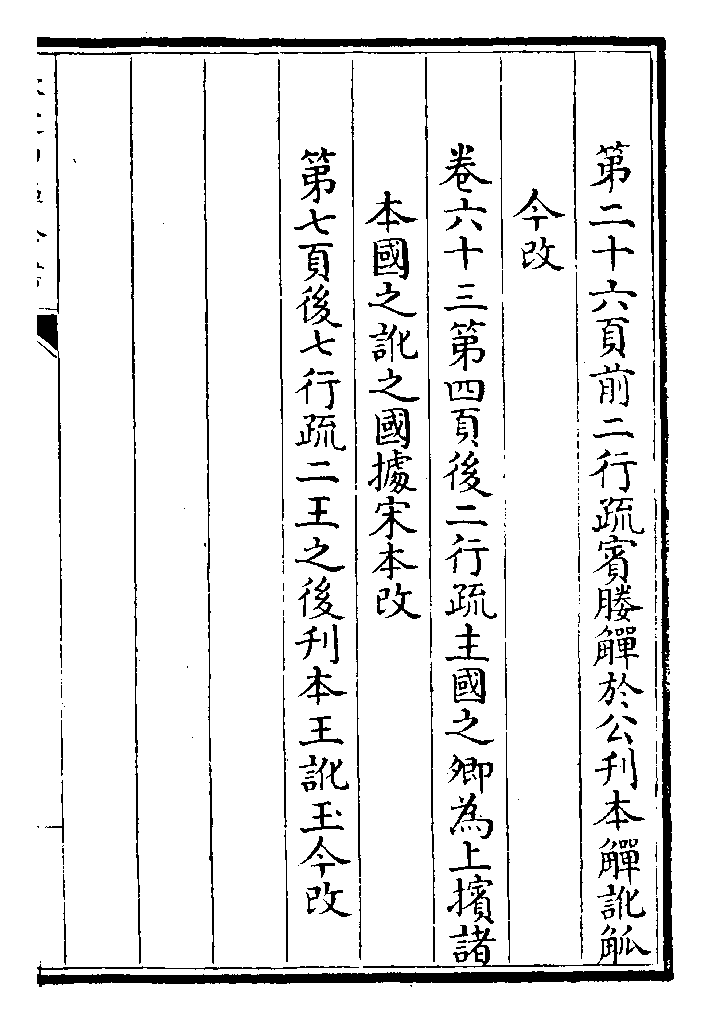 第二十六頁前二行疏賓媵觶於公刋本觶訛觚
今改
卷六十三第四頁後二行疏主國之卿為上擯諸
本國之訛之國據宋本改
第七頁後七行疏二王之後刋本王訛玉今改